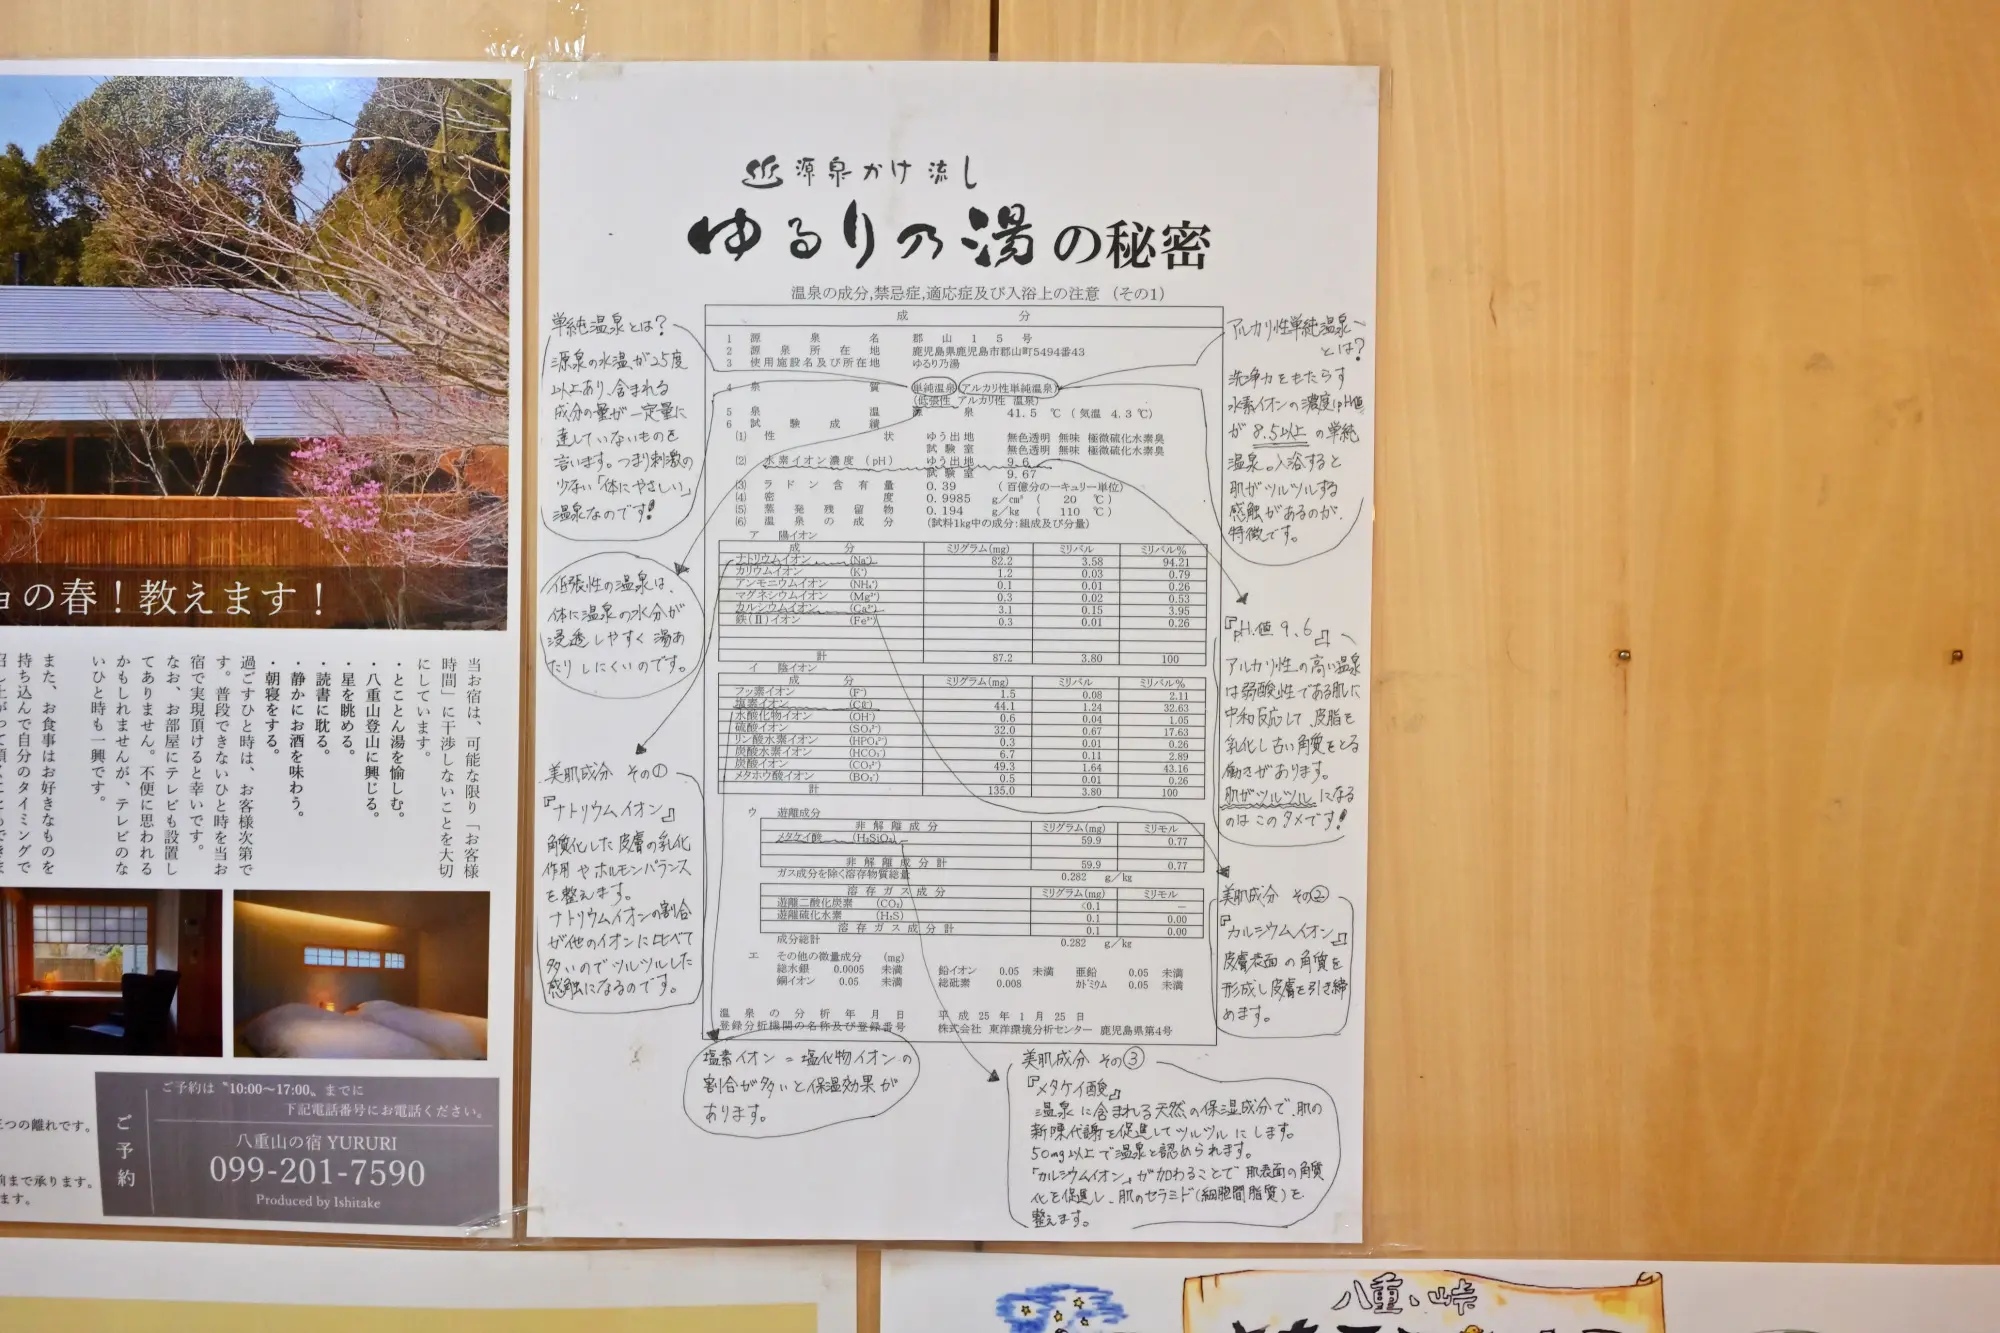 ョの春！教えます！
当お宿は、可能な限り「お客様
時間」に干渉しないことを大切
にしています。
・とことん湯を愉しむ。
・八重山登山に興じる。
・星を眺める。
・読書に耽る。
・静かにお酒を味わう。
・朝寝をする。
過ごすひと時は、お客様次第で
す。普段できないひと時を当お
宿で実現頂けると幸いです。
なお、お部屋にテレビも設置し
てありません。不便に思われる
かもしれませんが、テレビのな
いひと時も一興です。
また、お食事はお好きなものを
持ち込んで自分のタイミングで
三つの離れです。
前まで承ります。
ます。
ご予約
ご予約は〝10:00〜17:00〟までに
下記電話番号にお電話ください。
八重山の宿 YURURI
099-201-7590
Produced by Ishitake
源泉かけ流し
ゆるり乃湯の秘密
温泉の成分,禁忌症,適応症及び入浴上の注意 （その1）
成 分
1 源泉名 郡山15号
2 源泉所在地 鹿児島県鹿児島市郡山町5494番43
3 使用施設名及び所在地 ゆるり乃湯
4 泉質 単純温泉 (アルカリ性単純温泉)
(低張性 アルカリ性 温泉)
5 泉温 源泉 41.5 ℃ (気温 4.3℃)
6 試験成績
(1) 性状 ゆう出地 無色透明 無味 極微硫化水素臭
試験室 無色透明 無味 極微硫化水素臭
(2) 水素イオン濃度 (pH) ゆう出地 9.6
試験室 9.67
(3) ラドン含有量 0.39 (百億分の一キュリー単位)
(4) 密度 0.9985 g/cm³ ( 20 ℃)
(5) 蒸発残留物 0.194 g/kg ( 110 ℃)
(6) 温泉の成分 (試料1kg中の成分:組成及び分量)
ア 陽イオン
成 分 ミリグラム(mg) ミリバル ミリバル%
ナトリウムイオン (Na⁺) 82.2 3.58 94.21
カリウムイオン (K⁺) 1.2 0.03 0.79
アンモニウムイオン (NH₄⁺) 0.1 0.01 0.26
マグネシウムイオン (Mg²⁺) 0.3 0.02 0.53
カルシウムイオン (Ca²⁺) 3.1 0.15 3.95
鉄(Ⅱ)イオン (Fe²⁺) 0.3 0.01 0.26
計 87.2 3.80 100
イ 陰イオン
成 分 ミリグラム(mg) ミリバル ミリバル%
フッ素イオン (F⁻) 1.5 0.08 2.11
塩素イオン (Cℓ⁻) 44.1 1.24 32.63
水酸化物イオン (OH⁻) 0.6 0.04 1.05
硫酸イオン (SO₄²⁻) 32.0 0.67 17.63
リン酸水素イオン (HPO₄²⁻) 0.3 0.01 0.26
炭酸水素イオン (HCO₃⁻) 6.7 0.11 2.89
炭酸イオン (CO₃²⁻) 49.3 1.64 43.16
メタホウ酸イオン (BO₂⁻) 0.5 0.01 0.26
計 135.0 3.80 100
ウ 遊離成分
非解離成分 ミリグラム(mg) ミリモル
メタケイ酸 (H₂SiO₃) 59.9 0.77
非解離成分計 59.9 0.77
ガス成分を除く溶存物質総量 0.282 g/kg
溶存ガス成分 ミリグラム(mg) ミリモル
遊離二酸化炭素 (CO₂) <0.1 −
遊離硫化水素 (H₂S) 0.1 0.00
溶存ガス成分計 0.1 0.00
成分総計 0.282 g/kg
エ その他の微量成分 (mg)
総水銀 0.0005 未満 鉛イオン 0.05 未満 亜鉛 0.05 未満
銅イオン 0.05 未満 総砒素 0.008 カドミウム 0.05 未満
温泉の分析年月日 平成25年1月25日
登録分析機関の名称及び登録番号 株式会社 東洋環境分析センター 鹿児島県第4号
単純温泉とは？
源泉の水温が25度
以上あり、含まれる
成分の量が一定量に
達していないものを
言います。つまり刺激の
少ない「体にやさしい」
温泉なのです！
低張性の温泉は、
体に温泉の水分が
浸透しやすく湯あ
たりしにくいのです。
美肌成分 その①
『ナトリウムイオン』
角質化した皮膚の乳化
作用やホルモンバランス
を整えます。
ナトリウムイオンの割合
が他のイオンに比べて
多いのでツルツルした
感触になるのです。
塩素イオン＝塩化物イオンの
割合が多いと保温効果が
あります。
アルカリ性単純温泉
とは？
洗浄力をもたらす
水素イオンの濃度pH値
が8.5以上の単純
温泉。入浴すると
肌がツルツルする
感触があるのが、
特徴です。
『pH値 9.6』
アルカリ性の高い温泉
は弱酸性である肌に
中和反応して、皮脂を
乳化し古い角質をとる
働きがあります。
肌がツルツルになる
のはこのタメです！
美肌成分 その②
『カルシウムイオン』
皮膚表面の角質を
形成し皮膚を引き締
めます。
美肌成分 その③
『メタケイ酸』
温泉に含まれる天然の保湿成分で、肌の
新陳代謝を促進してツルツルにします。
50mg以上で温泉と認められます。
「カルシウムイオン」が加わることで肌表面の角質
化を促進し、肌のセラミド(細胞間脂質)を
整えます。
八重、峠